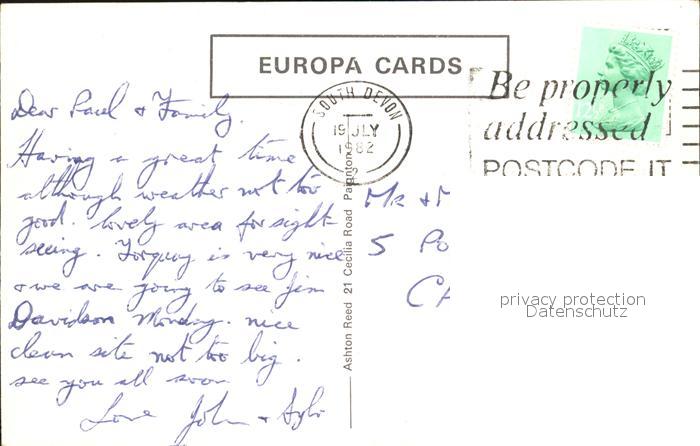 EUROPA CARDS
SOUTH DEVON
19 JLY
1982
Be properly
addressed
POSTCODE IT
Dear Paul & Family.
Having a great time
although weather not too
good. lovely area for sight-
seeing. Torquay is very nice
& we are going to see Jim
Davidson Monday. nice
clean site not too big.
see you all soon
Love John &
Mr &
5 Po
Ashton Reed 21 Cecilia Road Paignton
privacy protection
Datenschutz